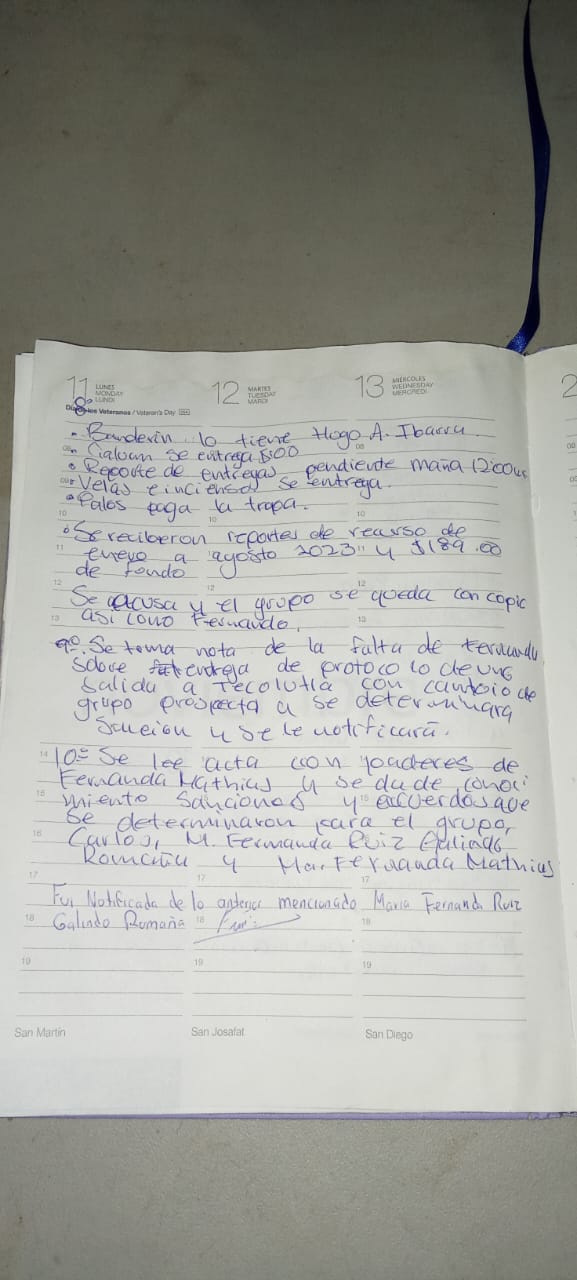 11 LUNES MONDAY LUNDI 12 MARTES TUESDAY MARDI 13 MIÉRCOLES WEDNESDAY MERCREDI 2
los Veteranos / Veteran's Day
• Banderin lo tiene Hugo A. Ibarra.
se entrega $500
• Reporte de entregas pendiente maña 12:00
• Velas e incienso se entrega.
• Palos paga la tropa.
• Se reciberon reportes de recurso de
enero a agosto 2023 y $189.00
de fondo
Se acusa y el grupo se queda con copic
asi como Fernando.
9º. Se toma nota de la falta de Fernanda
sobre entrega de protocolo de una
salida a Tecolutla con cambio de
grupo prospecta a se determinara
Sancion y se le notificará.
10º Se lee acta con padres de
Fernanda Mathius y se da de conoci
miento Sanciones y acuerdos que
se determinaron para el grupo,
Carlos, M. Fermanda Ruiz Galindo
Romaña y Ma. Fernanda Mathius
Fui Notificada de lo anterior mencionado Maria Fernanda Ruiz
Galindo Romaña
San Martín San Josafat San Diego